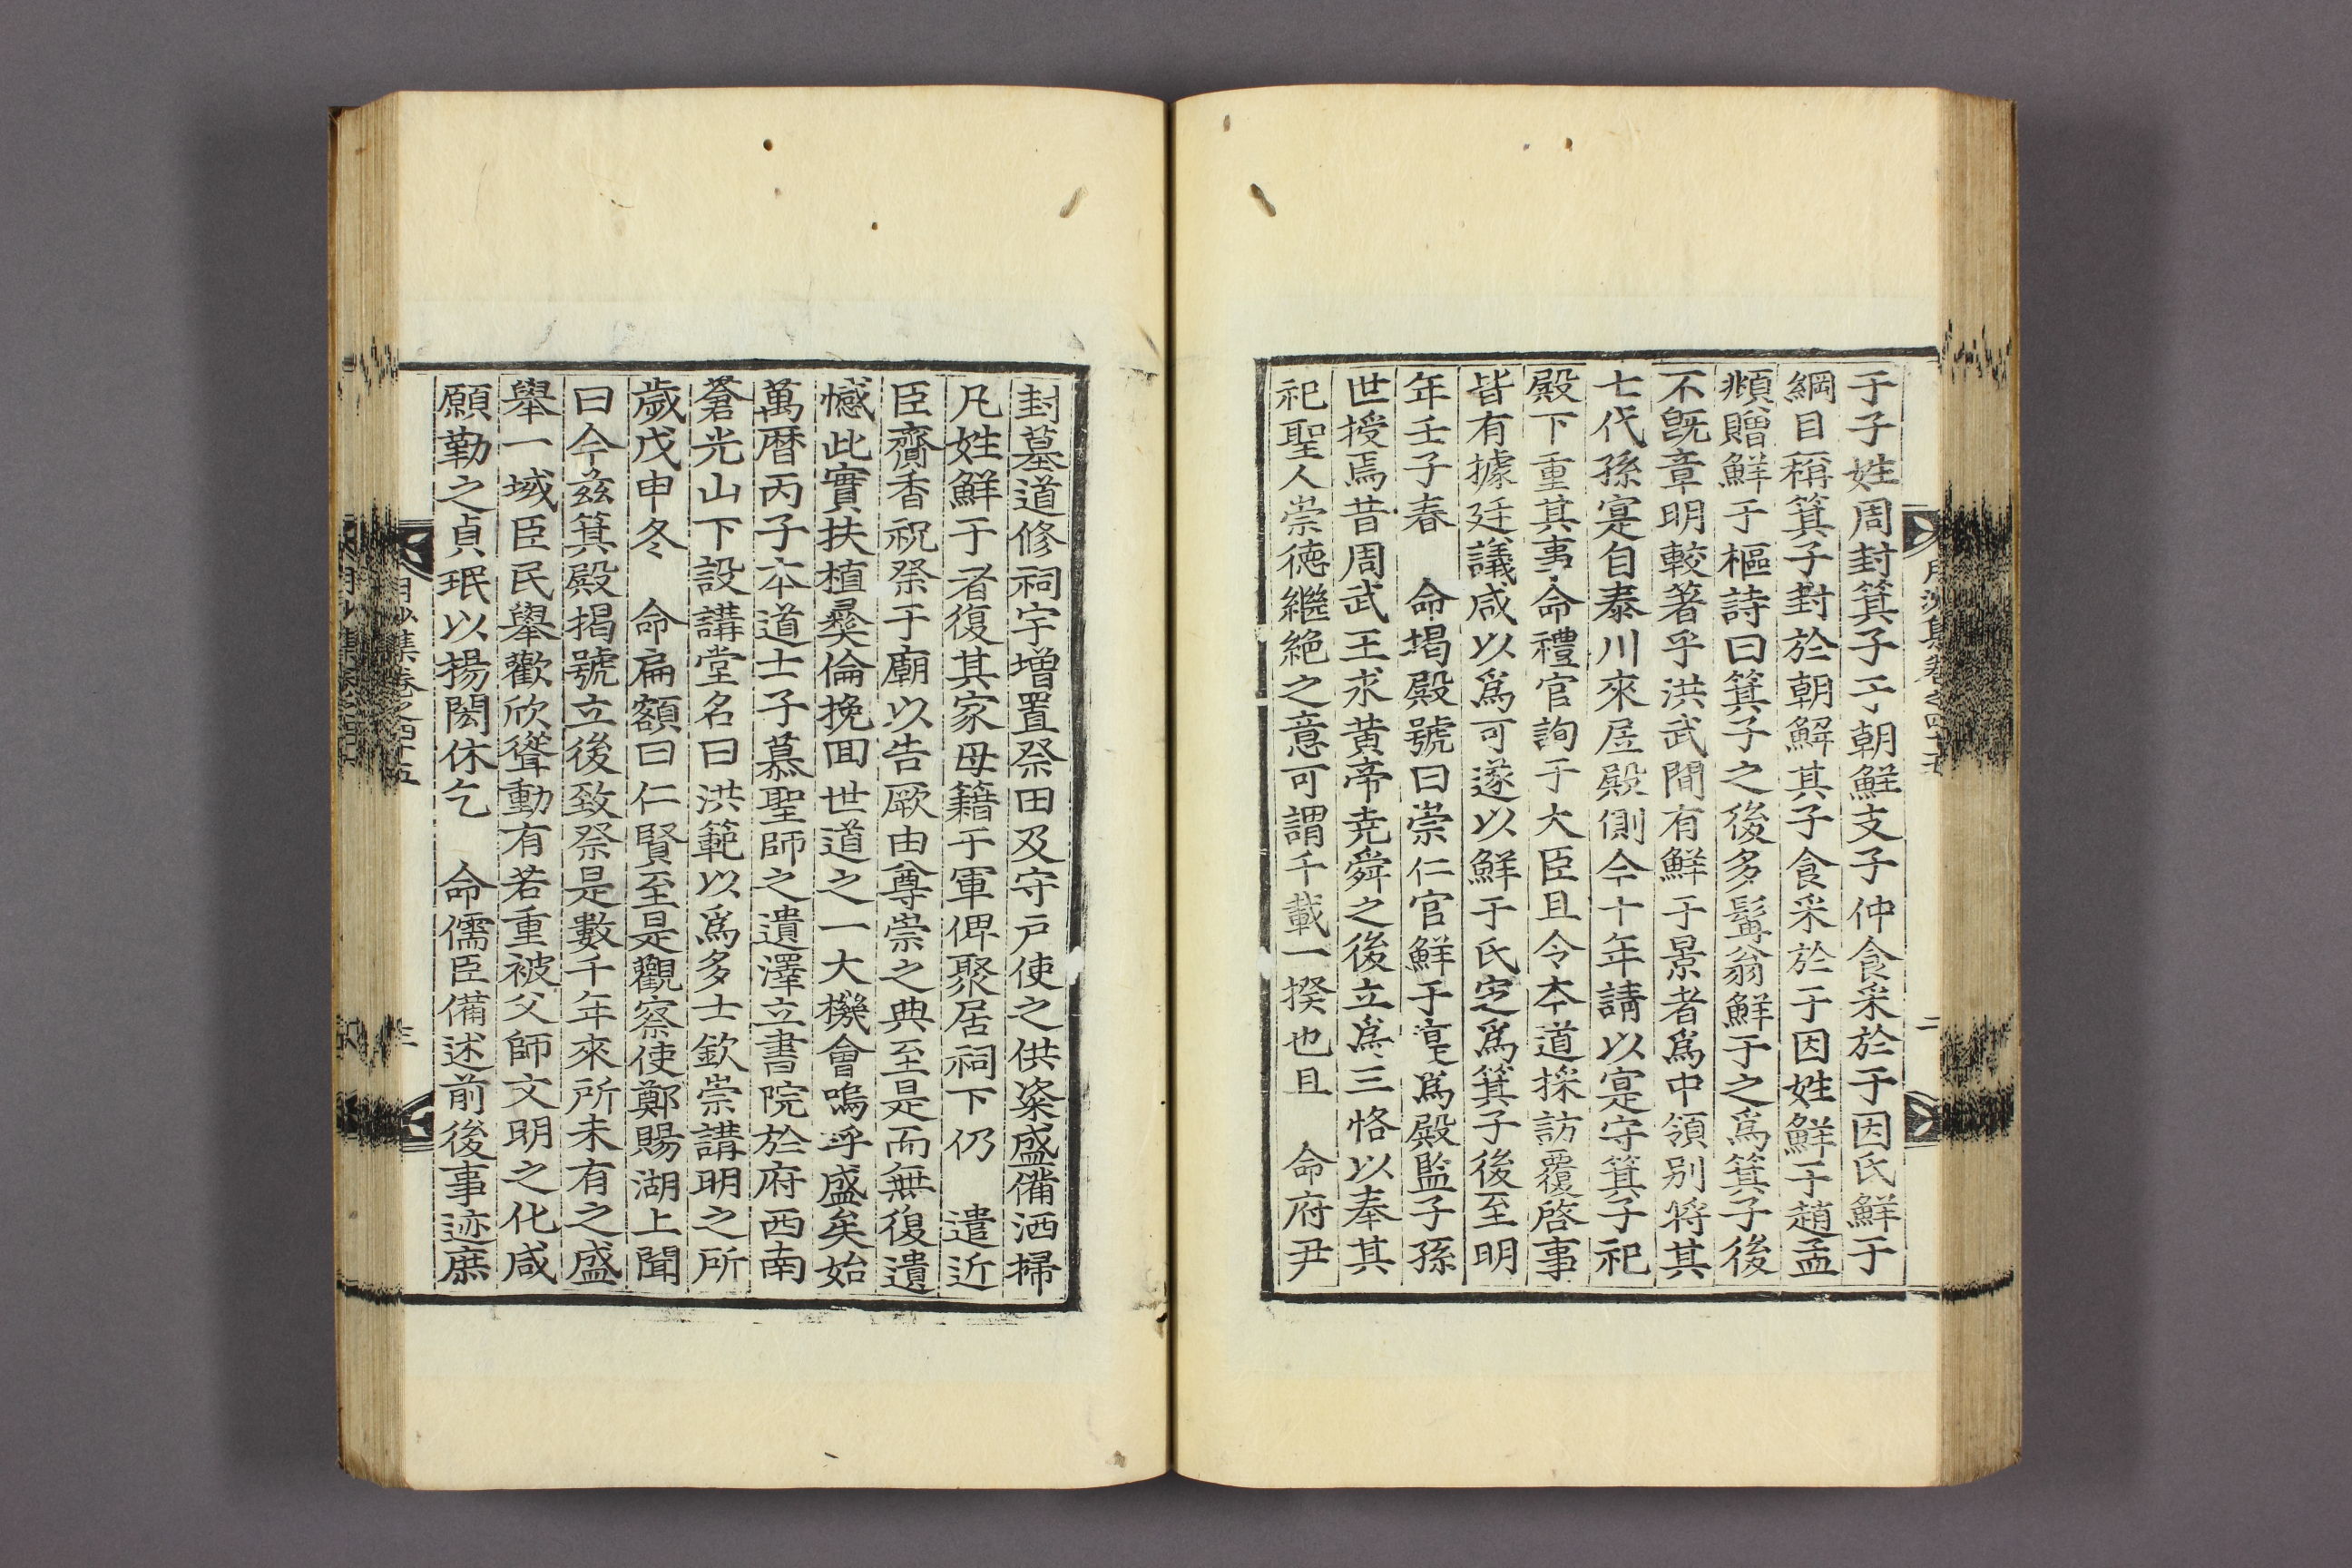 于子姓周封箕子于朝鮮支子仲食采於于因氏鮮于
綱目稱箕子封於朝鮮其子食采於于因姓鮮于趙孟
頫贈鮮于樞詩曰箕子之後多髯翁鮮于之爲箕子後
不既章明較著乎洪武間有鮮于景者爲中領別將其
七代孫寔自泰川來居殿側今十年請以寔守箕子祀
殿下重其事命禮官詢于大臣且令本道採訪覆啓事
皆有據廷議咸以爲可遂以鮮于氏定爲箕子後至明
年壬子春 命揭殿號曰崇仁官鮮于寔爲殿監子孫
世授焉昔周武王求黃帝堯舜之後立爲三恪以奉其
祀聖人崇德繼絶之意可謂千載一揆也且 命府尹
封墓道修祠宇增置祭田及守戶使之供粢盛備洒掃
凡姓鮮于者復其家毋籍于軍俾聚居祠下仍 遣近
臣齎香祝祭于廟以告厥由尊崇之典至是而無復遺
憾此實扶植彛倫挽回世道之一大機會嗚呼盛矣始
萬曆丙子本道士子慕聖師之遺澤立書院於府西南
蒼光山下設講堂名曰洪範以爲多士欽崇講明之所
歲戊申冬 命扁額曰仁賢至是觀察使鄭賜湖上聞
曰今玆箕殿揭號立後致祭是數千年來所未有之盛
舉一域臣民舉歡欣聳動有若重被父師文明之化咸
願勒之貞珉以揚閎休乞 命儒臣備述前後事迹庶
月沙集卷之四十五
二
月沙集卷之四十五
三